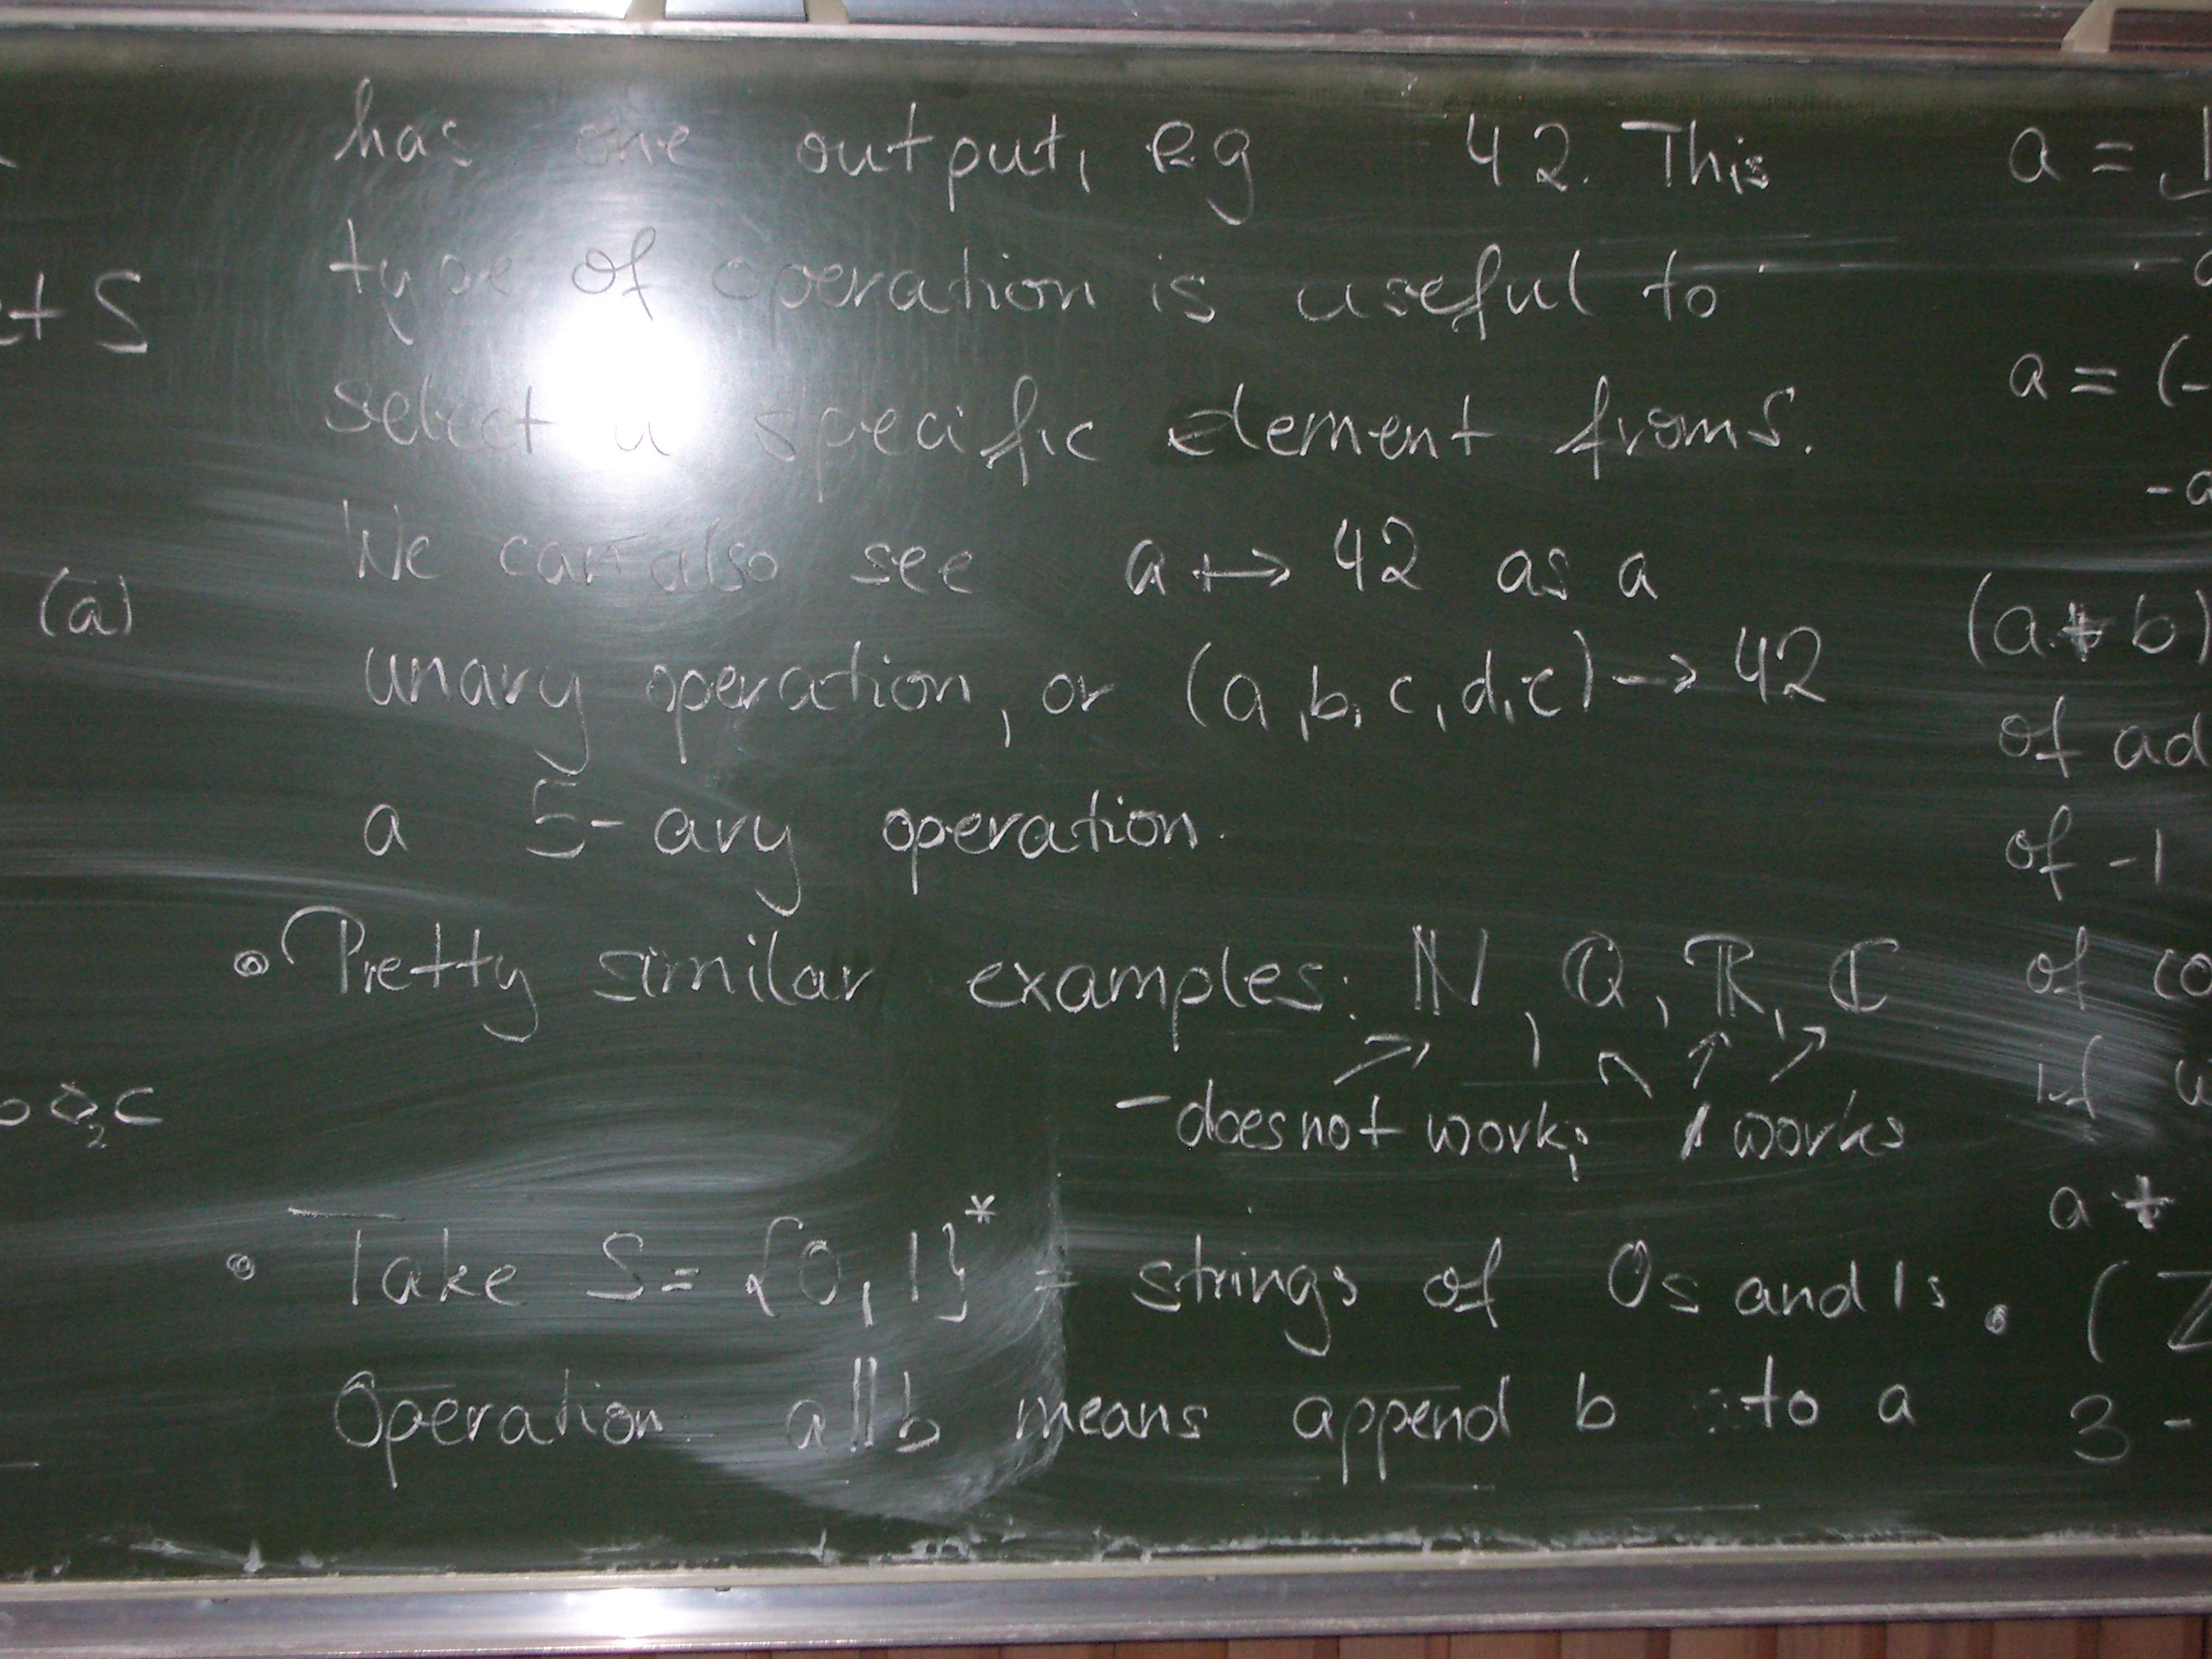 has one output, eg 42. This
type of operation is useful to
select a specific element from S.
We can also see a ↦ 42 as a
unary operation, or (a,b,c,d,e) → 42
a 5-ary operation.
• Pretty similar examples: ℕ, ℚ, ℝ, ℂ
- does not work; / works
• Take S = {0,1}* = strings of 0s and 1s.
Operation a||b means append b to a
et S
(a)
◇₂ c
a =
a = (-
-a
(a + b)
of ad
of -1
of co
if
a +
• (ℤ
3 -